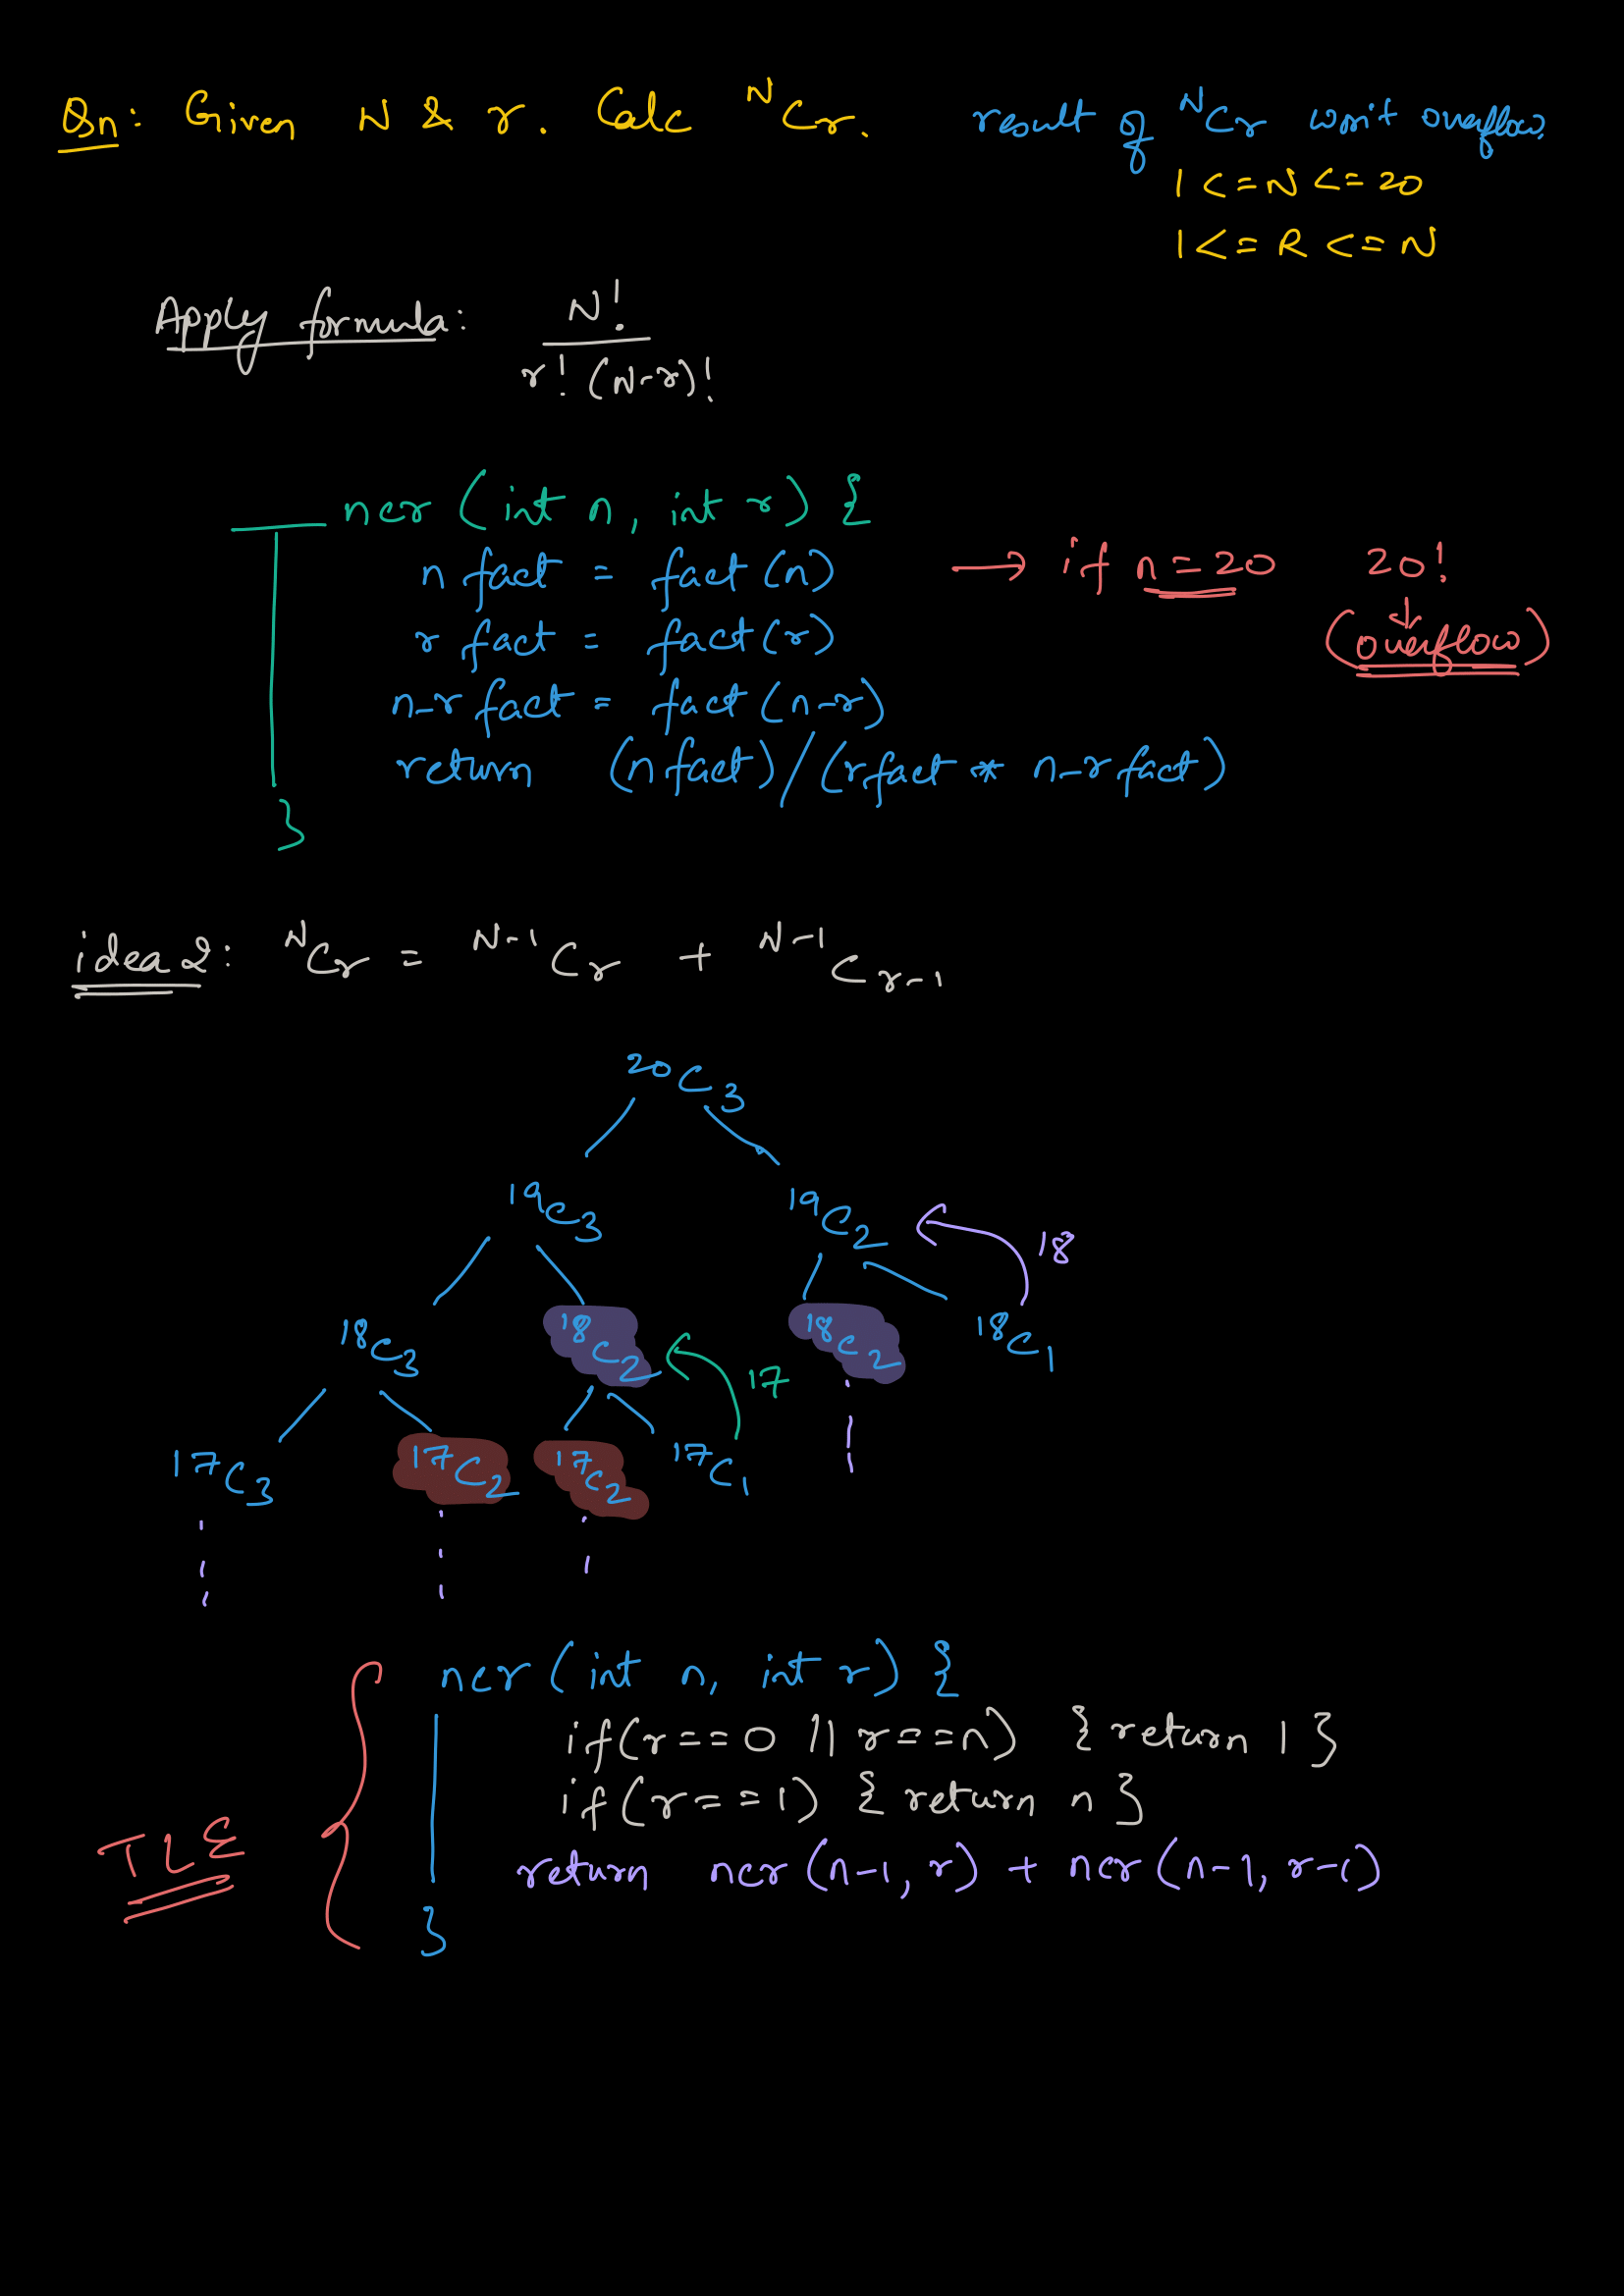 Qn: Given N & r. Calc ᴺCr. result of ᴺCr won't overflow.
1 <= N <= 20
1 <= R <= N
Apply formula: N!
r! (N-r)!
ncr (int n, int r) {
n fact = fact (n) → if n = 20 20!
r fact = fact (r) ↓
(overflow)
n-r fact = fact (n-r)
return (n fact) / (r fact * n-r fact)
}
idea 2: ᴺCr = ᴺ⁻¹Cr + ᴺ⁻¹Cr-1
²⁰C₃
¹⁹C₃ ¹⁹C₂ 18
¹⁸C₃ ¹⁸C₂ 17 ¹⁸C₂ ¹⁸C₁
¹⁷C₃ ¹⁷C₂ ¹⁷C₂ ¹⁷C₁
ncr (int n, int r) {
if (r == 0 || r == n) { return 1 }
if (r == 1) { return n }
TLE return ncr (n-1, r) + ncr (n-1, r-1)
}